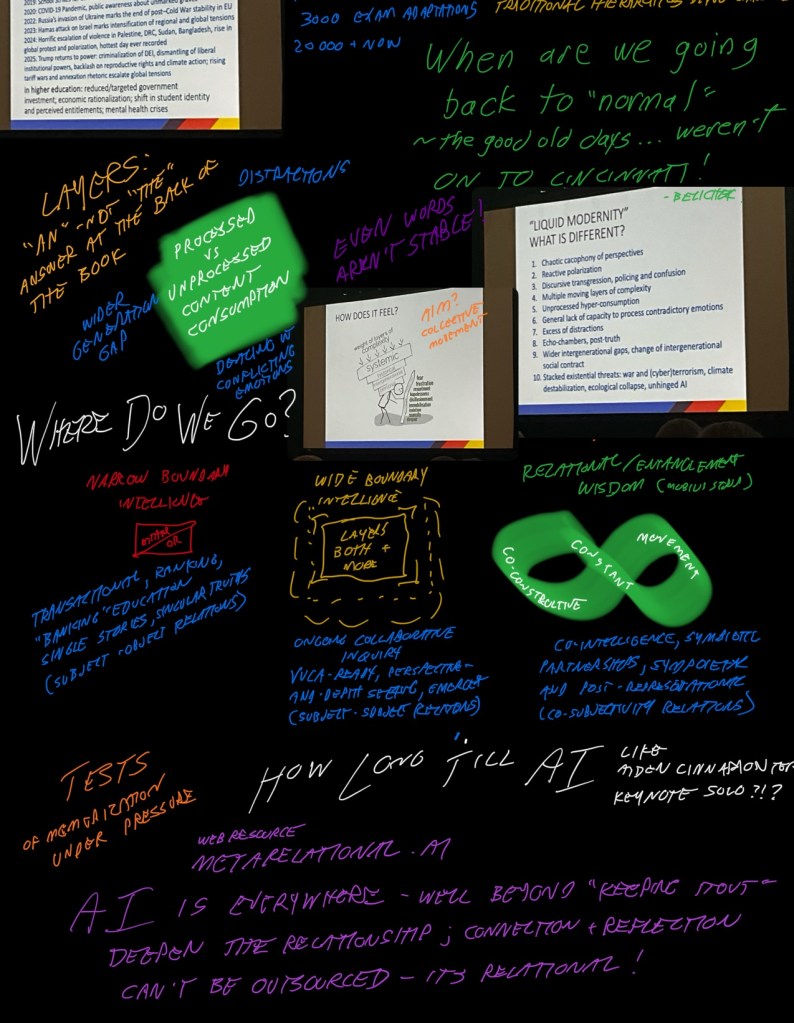 2020: COVID-19 Pandemic, public awareness about
2022: Russia's invasion of Ukraine marks the end of post-Cold War stability in EU
2023: Hamas attack on Israel marks intensification of regional and global tensions
2024: Horrific escalation of violence in Palestine, DRC, Sudan, Bangladesh, rise in
global protest and polarization, hottest day ever recorded
2025: Trump returns to power: criminalization of DEI, dismantling of liberal
institutional powers, backlash on reproductive rights and climate action; rising
tariff wars and annexation rhetoric escalate global tensions
In higher education: reduced/targeted government
investment; economic rationalization; shift in student identity
and perceived entitlements; mental health crises
3000 EXAM ADAPTATIONS
20000 + NOW
TRADITIONAL HIERARCHIES
When are we going
back to "normal"
~ the good old days... weren't
ON TO CINCINNATI!
- BELICHEK
LAYERS:
"AN" - NOT "THE"
ANSWER AT THE BACK OF
THE BOOK
DISTRACTIONS
PROCESSED
VS
UNPROCESSED
CONTENT
CONSUMPTION
WIDER
GENERATION
GAP
DEALING W
CONFLICTING
EMOTIONS
EVEN WORDS
AREN'T STABLE!
HOW DOES IT FEEL?
weight of layers of
complexity
systemic
fear
frustration
resentment
AIM?
COLLECTIVE
MOVEMENT
"LIQUID MODERNITY"
WHAT IS DIFFERENT?
1. Chaotic cacophony of perspectives
2. Reactive polarization
3. Discursive transgression, policing and confusion
4. Multiple moving layers of complexity
5. Unprocessed hyper-consumption
6. General lack of capacity to process contradictory emotions
7. Excess of distractions
8. Echo-chambers, post-truth
9. Wider intergenerational gaps, change of intergenerational
social contract
10. Stacked existential threats: war and (cyber)terrorism, climate
destabilization, ecological collapse, unhinged AI
WHERE DO WE GO?
NARROW BOUNDARY
INTELLIGENCE
EITHER
OR
TRANSACTIONAL, RANKING,
"BANKING" EDUCATION
SINGLE STORIES, SINGULAR TRUTHS
(SUBJECT-OBJECT RELATIONS)
WIDE BOUNDARY
INTELLIGENCE
LAYERS
BOTH +
MORE
ONGOING COLLABORATIVE
INQUIRY
VUCA-READY, PERSPECTIVE-
AND-DEPTH SEEKING, EMERGENT
(SUBJECT-SUBJECT RELATIONS)
RELATIONAL/ENTANGLEMENT
WISDOM (MOBIUS STRIP)
CO-CONSTRUCTIVE
CONSTANT
MOVEMENT
CO-INTELLIGENCE, SYMBIOTIC
PARTNERSHIPS, SYMPOIETIC
AND POST-REPRESENTATIONAL
(CO-SUBJECTIVITY RELATIONS)
TESTS
OF MEMORIZATION
UNDER PRESSURE
HOW LONG TILL AI
LIKE
AIDEN CINNAMON TEA
KEYNOTE SOLO?!?
WEB RESOURCE
METARELATIONAL.AI
AI IS EVERYWHERE - WELL BEYOND "KEEPING IT OUT"
DEEPEN THE RELATIONSHIP; CONNECTION + REFLECTION
CAN'T BE OUTSOURCED - ITS RELATIONAL!